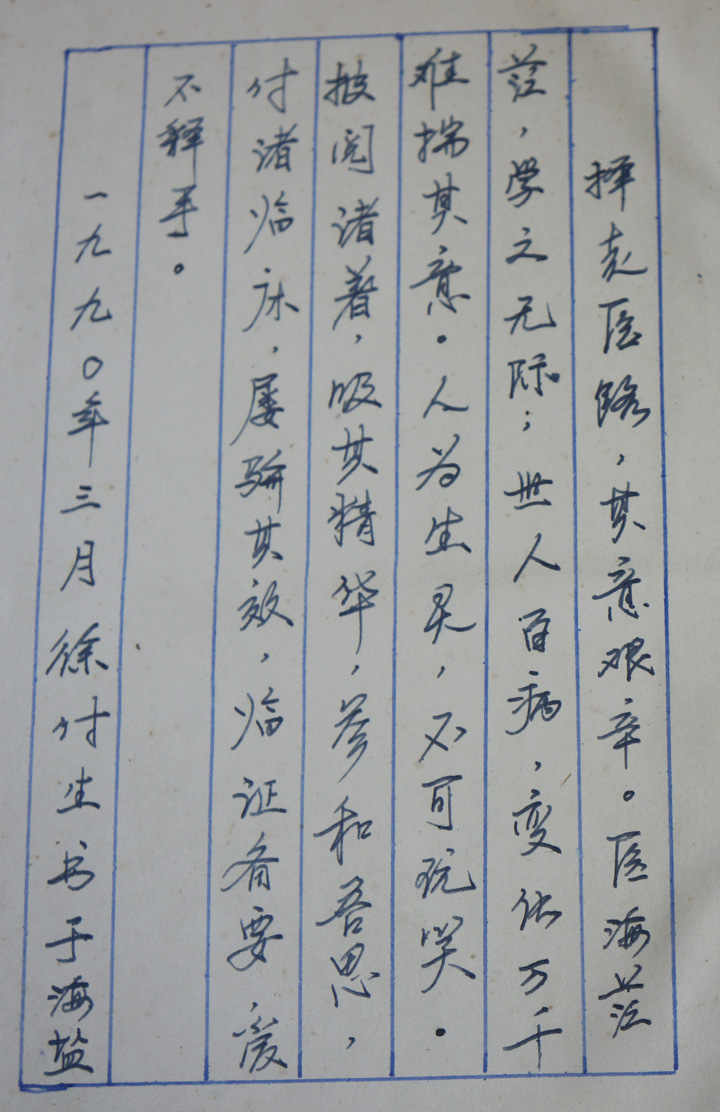 择走医路，其意艰辛。医海茫
茫，学之无际；世人百病，变化万千
难揣其意。人为生灵，不可玩哭。
披阅诸著，吸其精华，参和吾思，
付诸临床，屡验其效，临证备要，爱
不释手。
一九九〇年三月徐付生书于海盐